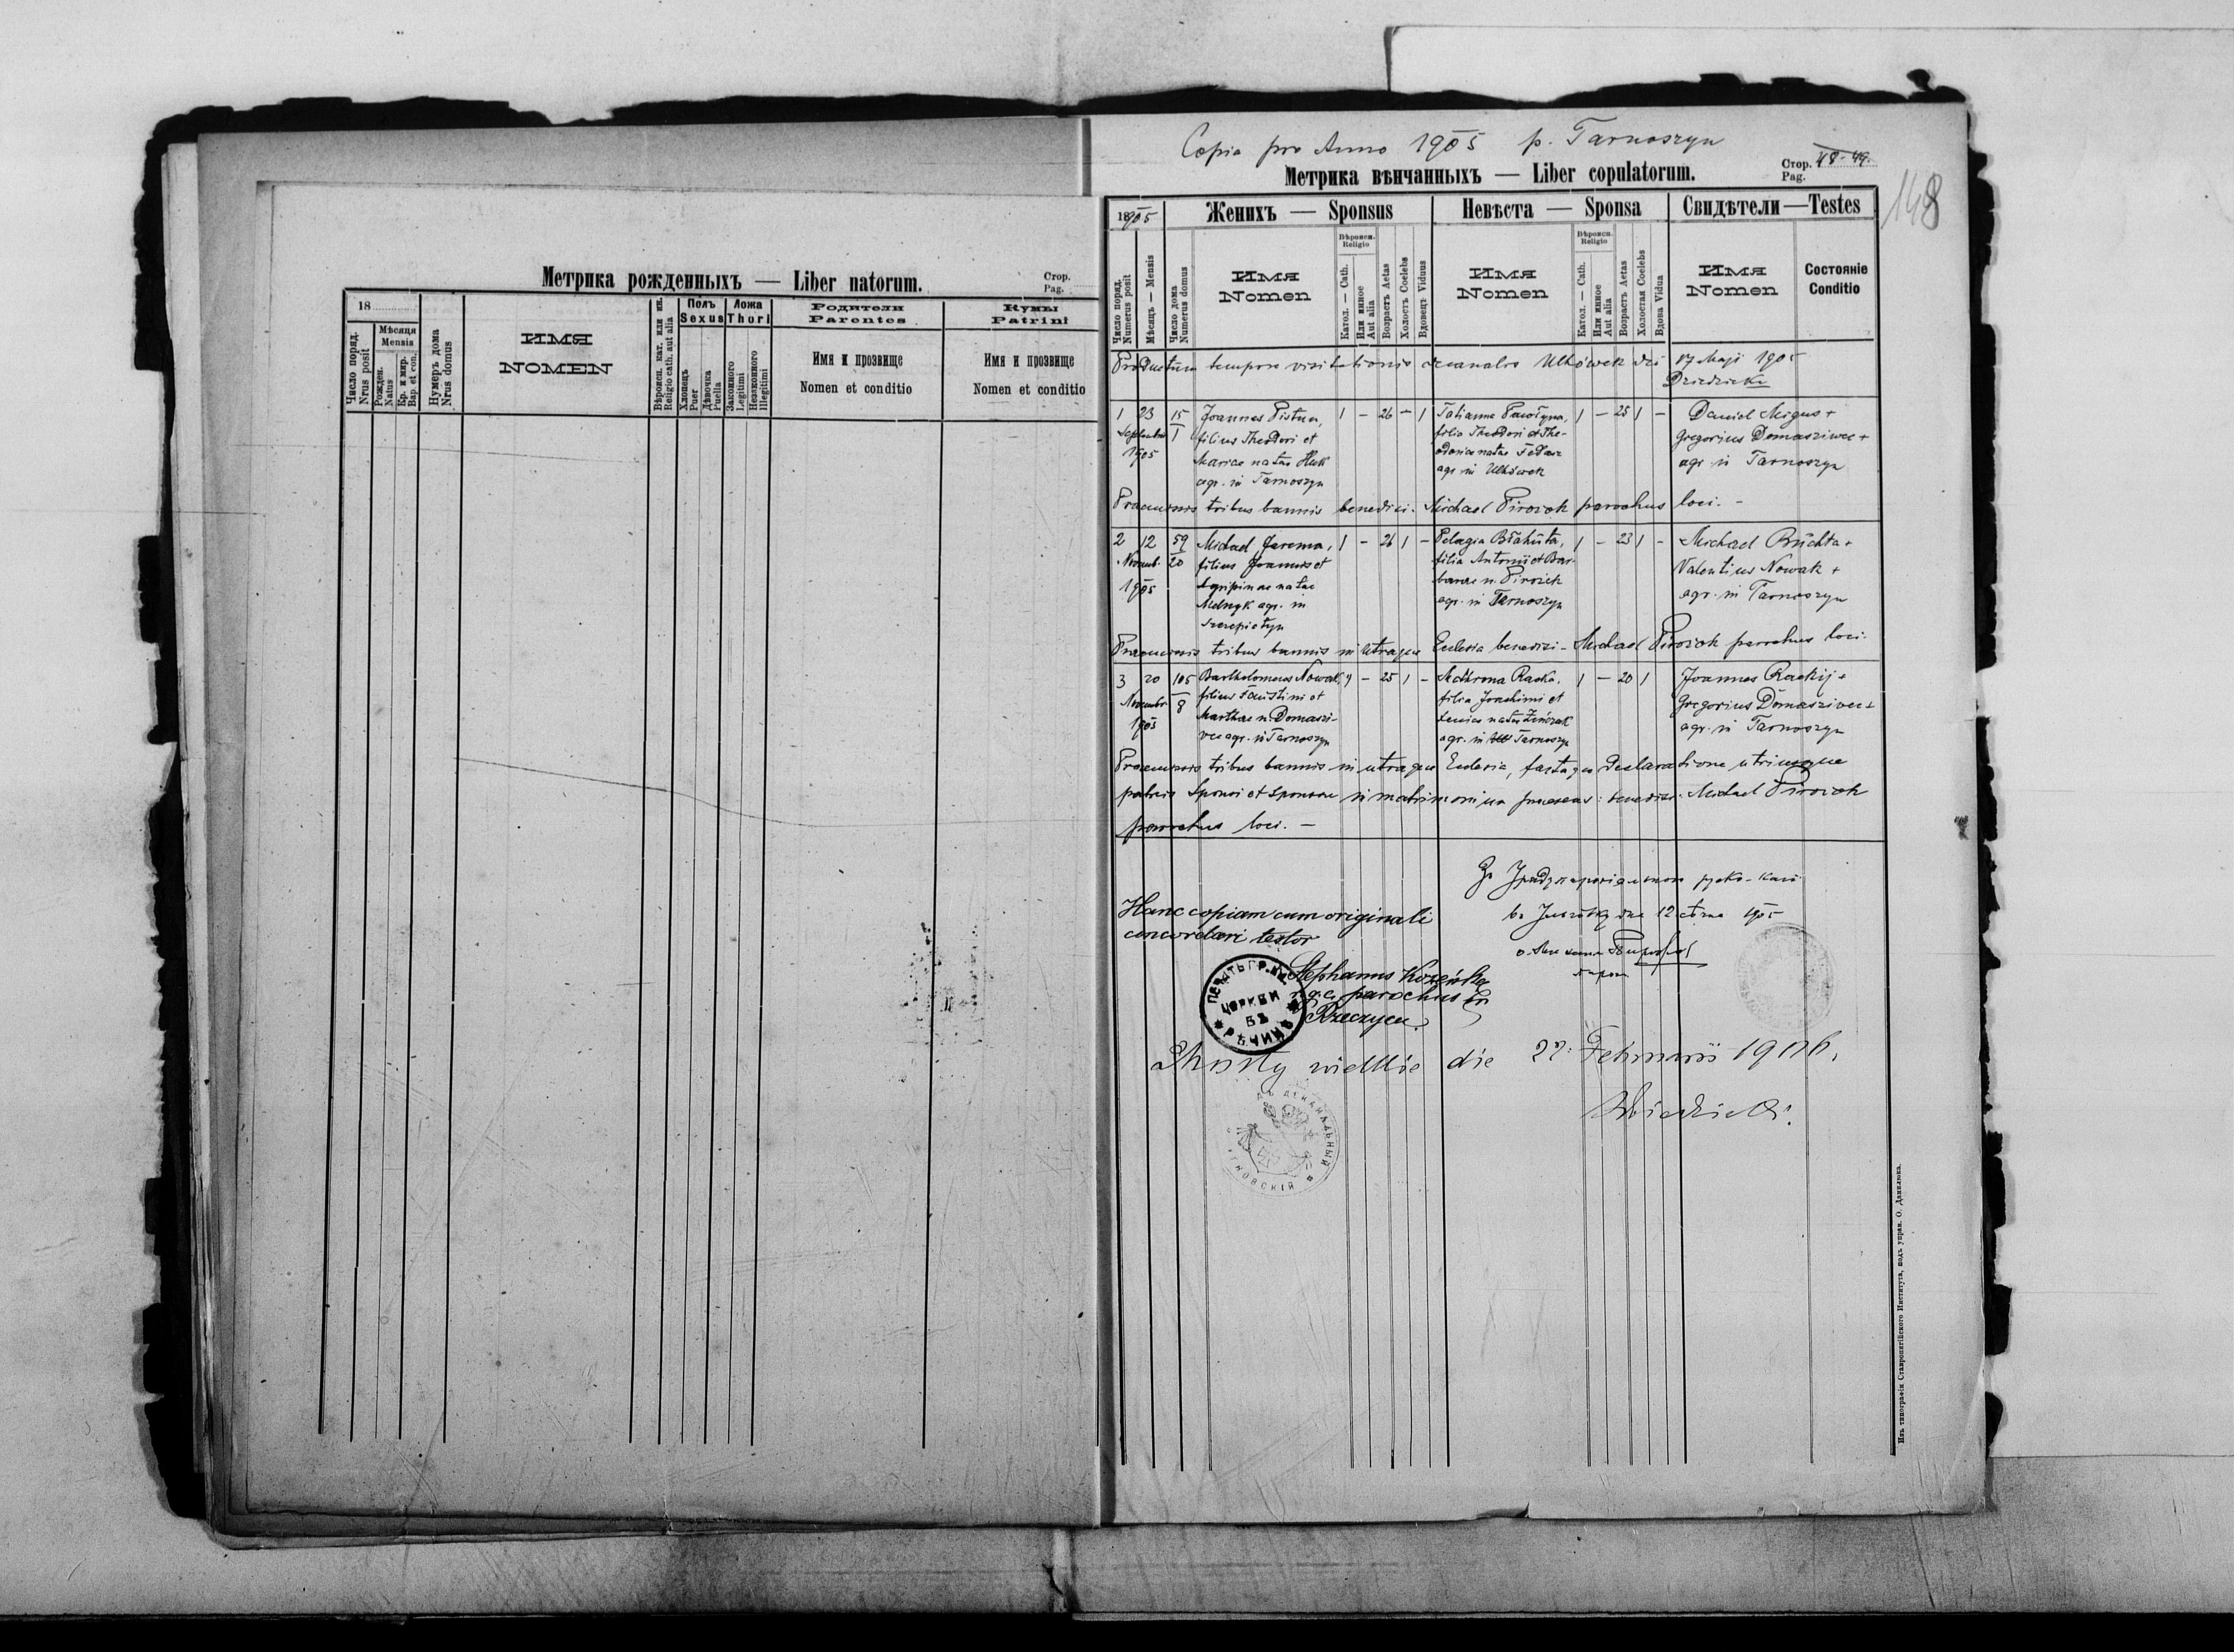 Метрика рожденныхъ — Liber natorum.
Стор.
Pag.
18
Число поряд.
Nrus posit
Мѣсяця
Mensis
Рожден.
Natus
Кр. и мир.
Bap. et con.
Нумеръ дома
Nrus domus
ИМЯ
NOMEN
Вѣроисп. кат. или ин.
Religio cath. aut alia
Полъ
Sexus
Хлопецъ
Puer
Дѣвочка
Puella
Ложа
Thori
Законного
Legitimi
Незаконного
Illegitimi
Родители
Parentes
Имя и прозвище
Nomen et conditio
Кумы
Patrini
Имя и прозвище
Nomen et conditio
Copia pro Anno 1905 p. Tarnoszyn
Метрика вѣнчанныхъ — Liber copulatorum.
Стор. 48-49.
Pag.
148
1905
Женихъ — Sponsus
Невѣста — Sponsa
Свидѣтели — Testes
Число поряд.
Numerus posit
Мѣсяцъ — Mensis
Число дома
Numerus domus
Имя
Nomen
Вѣроисп.
Religio
Катол. — Cath.
Или инное
Aut alia
Возрастъ Aetas
Холостъ Coelebs
Вдовецъ Viduus
Имя
Nomen
Вѣроисп.
Religio
Катол. — Cath.
Или инное
Aut alia
Возрастъ Aetas
Холостая Coelebs
Вдова Vidua
Имя
Nomen
Состояніе
Conditio
Productum tempore visitationis decanalis Uhnówek 17 Maji 1905
1 23 15 Joannes Pistun, 1 – 26 – 1 Tatianna 1 – 25 1 – Daniel Migus +
Septembris 1 filius Theodori et filia Theodori et The- Gregorius Domasziwec +
1905 Mariae natae Huk odoriae natae Fedasz agr. in Tarnoszyn
agr. in Tarnoszyn agr. in Ulhówek
Praemissis tribus bannis benedixi. Michael Pirożok parochus loci. –
2 12 59 Michael Jarema, 1 – 26 1 – Pelagia 1 – 23 1 – Michael Buchta +
Novemb. 20 filius Joannis et filia Antonii et Bar- Valentius Nowak +
1905 Agripinae natae barae n. Pirożek agr. in Tarnoszyn
Melnyk agr. in agr. in Tarnoszyn
Szczepiatyn
Praemissis tribus bannis in utraque Ecclesia benedixi – Michael Pirożok parochus loci.
3 20 105 Bartholomeus Nowak, 1 – 25 1 – Matrona Racka, 1 – 20 1 Joannes Rackij +
Novembr. 8 filius Faustini et filia Joachimi et Gregorius Domasziwec +
1905 Marthae n. Domaszi- agr. in Tarnoszyn
vec agr. in Tarnoszyn agr. in Tarnoszyn
Praemissis tribus bannis in utraque Ecclesia, factaque declaratione utriusque
patris Sponsi et Sponsae in matrimonium benedixi. Michael Pirożok
parochus loci. –
Hanc copiam cum originali
concordare testor
12 1905
Stephanus
r.g.c. parochus in
Rzeczyca
ПЕЧАТЬ ГР. ЦЕРКВИ ВЪ
vidi die 22. Februarii 1906.
ДЕКАНАЛЬНЫЙ
Изъ типографіи Ставропигійского Института, подъ управ. О. Данилюка.